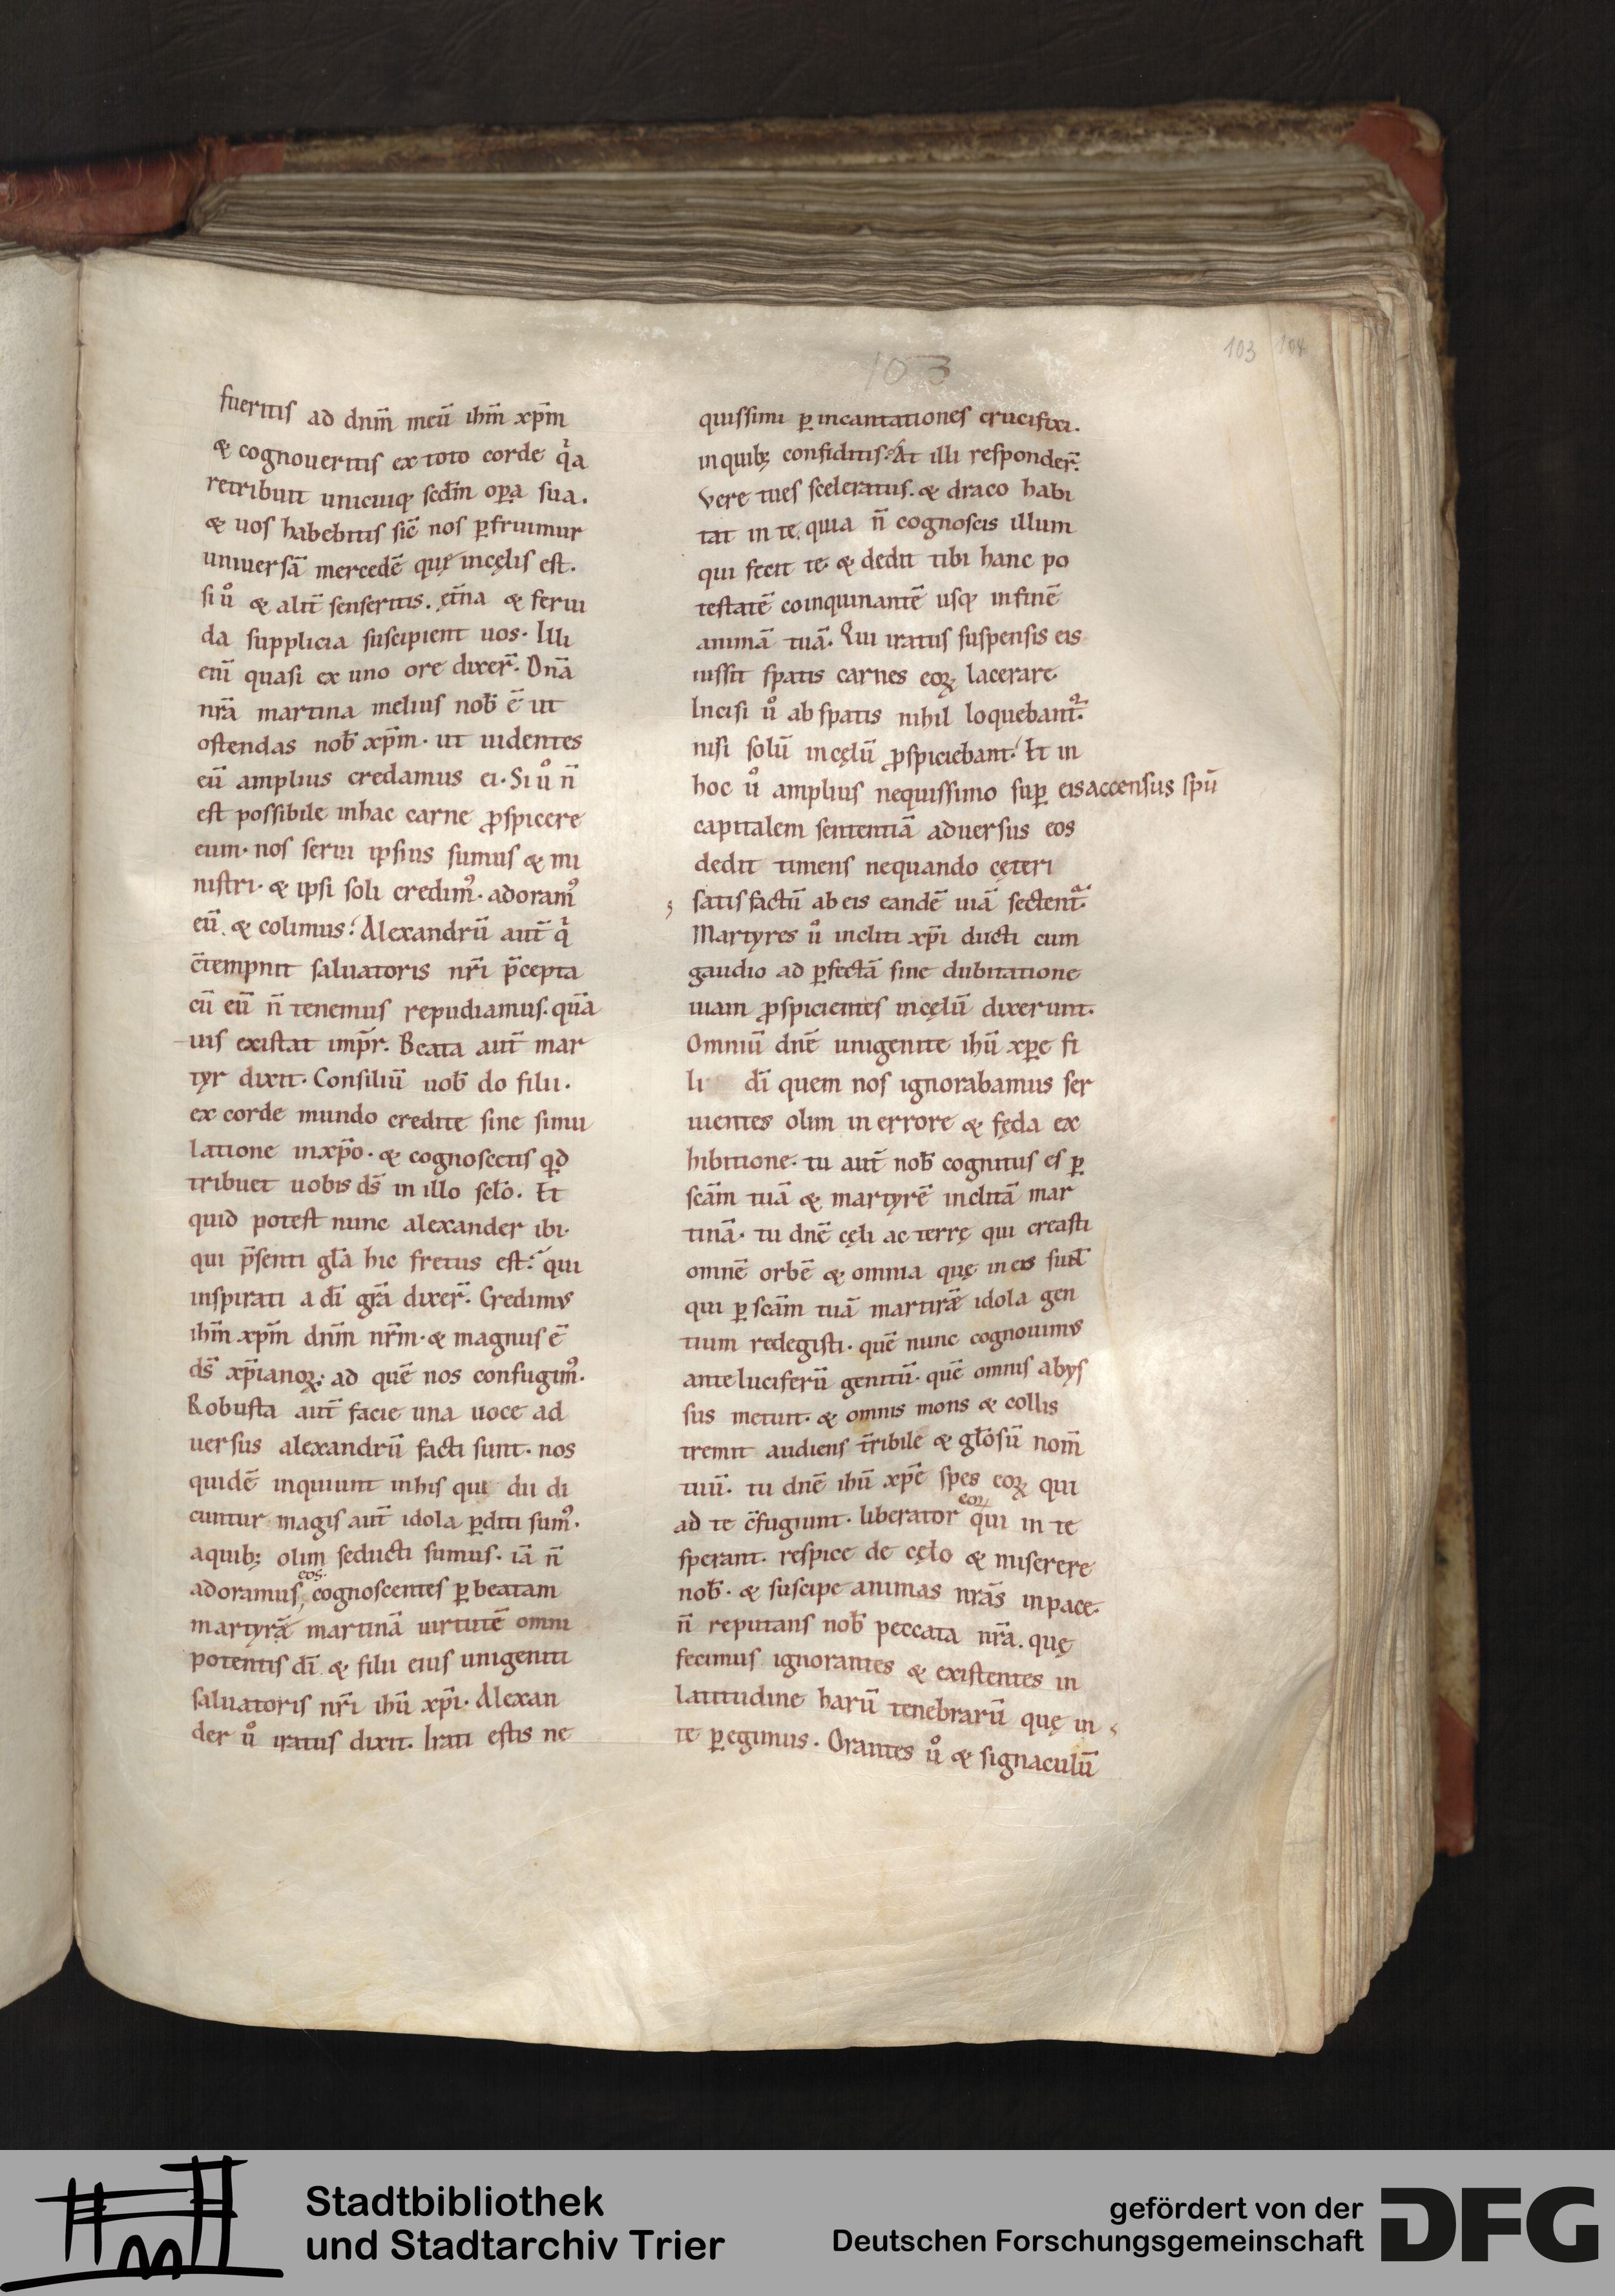 103 104
103
fueritis ad dnm̄ meū ihm̄ xp̄m
& cognoueritis ex toto corde q̇a
retribuit unicuiq; scdm̄ op̱a sua.
& uos habebitis sic̄ nos p̱fruimur
uniuersā mercedē quę incęlis est.
si u̇ & alit̄ senseritis. et̄na & ferui
da supplicia suscipient uos. Illi
eni̅ quasi ex uno ore dixer̄. Dn̄a
nr̄a martina melius nob̄ ē ut
ostendas nob̄ xp̄m. ut uidentes
eū amplius credamus ei. Si u̇ n̄
est possibile inhac carne ꝓspicere
eum. nos serui ipsius sumus & mi
nistri. & ipsi soli credim᾿. adoram᾿
eū. & colimus. Alexandrū aut̄ q̇
c̄tempnit saluatoris nr̄i p̄cepta
cū eū n̄ tenemus repudiamus. quā
uis existat imp̄r. Beata aut̄ mar
tyr dixit. Consiliū uob̄ do filii.
ex corde mundo credite sine simu
latione inxp̄o. & cognoscetis qd̄
tribuet uobis ds̄ in illo sclō. Et
quid potest nunc alexander ibi.
qui p̄senti gl̄a hic fretus est. qui
inspirati a dī gr̄a dixer̄. Credimus
ihm̄ xp̄m dnm̄ nr̄m. & magnus ē
ds̄ xp̄ianoꝝ. ad quē nos confugim᾿.
Robusta aut̄ facie una uoce ad
uersus alexandrū facti sunt. nos
quidē inquiunt inhis qui dii di
cuntur magis aut̄ idola p̱diti sum᾿.
aquib; olim seducti sumus. iā n̄
eos.
adoramus, cognoscentes p̱ beatam
martyrā martinā uirtutē omni
potentis dī. & filii eius unigeniti
saluatoris nr̄i ihū xp̄i. Alexan
der u̇ iratus dixit. Irati estis ne
quissimi p̱ incantationes crucifixi.
inquib; confiditis. At illi responder̄.
Vere tu es sceleratus. & draco habi
tat in te. quia n̄ cognoscis illum
qui fecit te. & dedit tibi hanc po
testatē coinquinantē usq; infinē
animā tuā. Qui iratus suspensis eis
iussit spatis carnes eoꝝ lacerare.
Incisi u̇ ab spatis nihil loquebant᾿.
nisi solū incęlū ꝓspiciebant. Et in
hoc u̇ amplius nequissimo sup̱ eis accensus spū
capitalem sententiā aduersus eos
dedit timens nequando cęteri
satisfactū ab eis eandē uiā sectent᾿.
Martyres u̇ incliti xp̄i ducti cum
gaudio ad p̱fectā sine dubitatione
uiam ꝓspicientes incęlū dixerunt.
Omniū dnē unigenite ihū xpē fi
li dī quem nos ignorabamus ser
uientes olim in errore & fęda ex
hibitione. tu aut̄ nob̄ cognitus es p̱
scām tuā & martyrē inclitā mar
tinā. tu dnē cęli ac terrę qui creasti
omnē orbē & omnia quę in eis sunt
qui p̱ scām tuā martirā idola gen
tium redegisti. quē nunc cognouimus
ante luciferū genitū. quē omnis abys
sus metuit. & omnis mons & collis
tremit audiens t̄ribile & gl̄osū nom̄
tuū. tu dnē ihū xpē spes eoꝝ qui
eoꝝ
ad te c̄fugiunt. liberator qui in te
sperant. respice de cęlo & miserere
nob̄. & suscipe animas nr̄as inpace.
n̄ reputans nob̄ peccata nr̄a. quę
fecimus ignorantes & existentes in
latitudine harū tenebrarū quę in
te p̱egimus. Orantes u̇ & signaculū
Stadtbibliothek
und Stadtarchiv Trier
gefördert von der
Deutschen Forschungsgemeinschaft
DFG